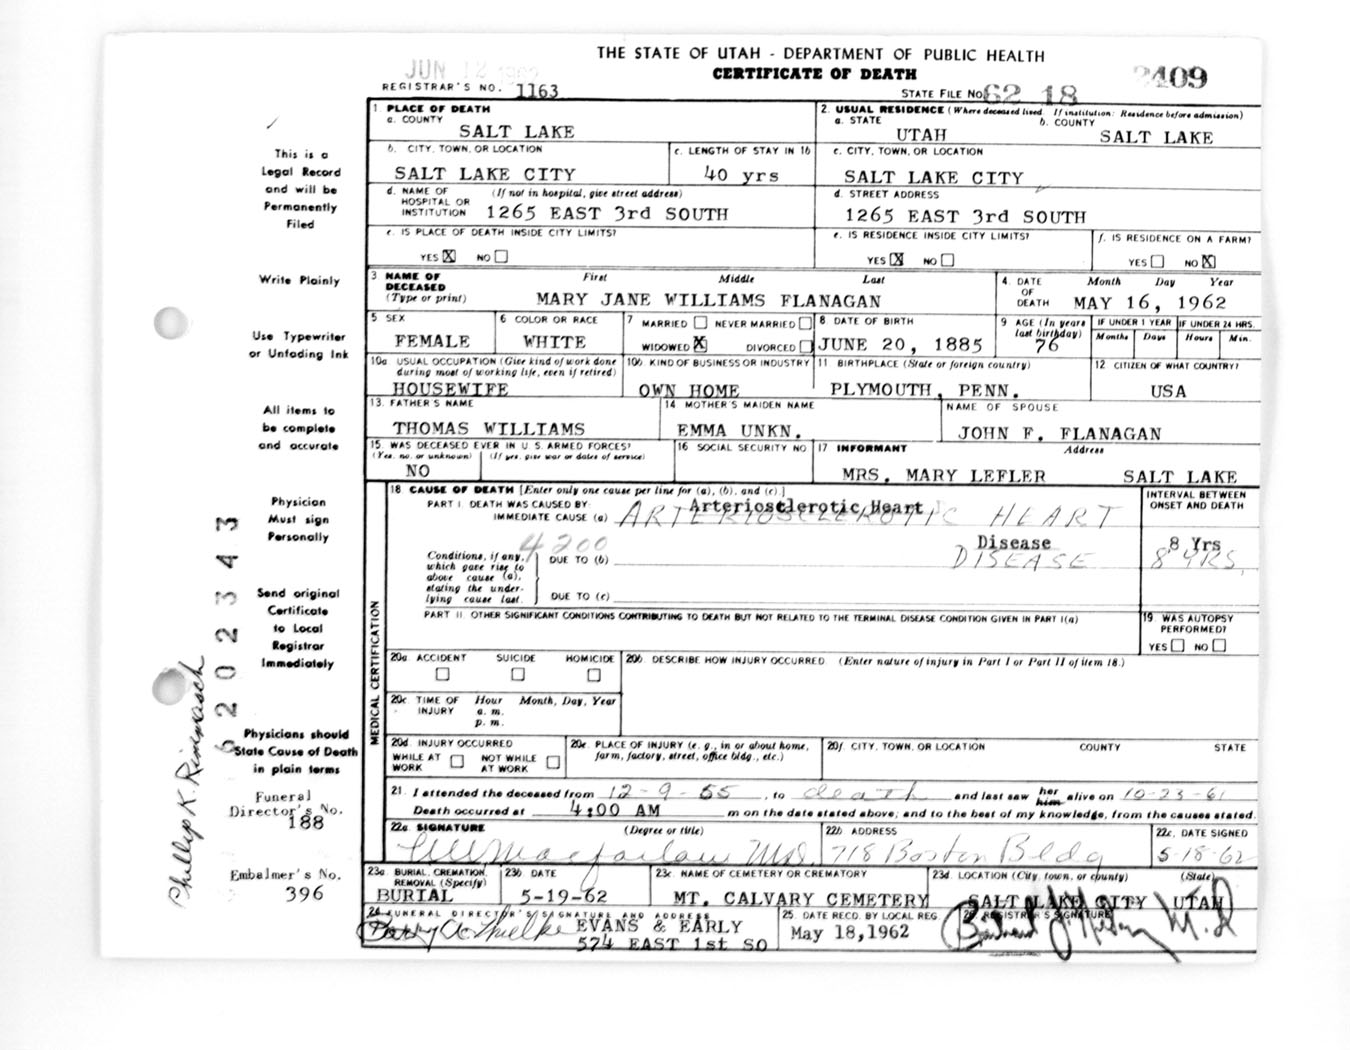 THE STATE OF UTAH - DEPARTMENT OF PUBLIC HEALTH
JUN 12 1962
CERTIFICATE OF DEATH
2409
REGISTRAR'S NO. 1163
STATE FILE NO. 62 18
1. PLACE OF DEATH
a. COUNTY
SALT LAKE
2. USUAL RESIDENCE (Where deceased lived. If institution: Residence before admission)
a. STATE
UTAH
b. COUNTY
SALT LAKE
b. CITY, TOWN, OR LOCATION
SALT LAKE CITY
c. LENGTH OF STAY IN 1b
40 yrs
c. CITY, TOWN, OR LOCATION
SALT LAKE CITY
d. NAME OF HOSPITAL OR INSTITUTION
(If not in hospital, give street address)
1265 EAST 3rd SOUTH
d. STREET ADDRESS
1265 EAST 3rd SOUTH
e. IS PLACE OF DEATH INSIDE CITY LIMITS?
YES X NO
e. IS RESIDENCE INSIDE CITY LIMITS?
YES X NO
f. IS RESIDENCE ON A FARM?
YES NO X
3 NAME OF DECEASED (Type or print)
First Middle Last
MARY JANE WILLIAMS FLANAGAN
4. DATE OF DEATH
Month Day Year
MAY 16, 1962
5 SEX
FEMALE
6 COLOR OR RACE
WHITE
7 MARRIED NEVER MARRIED
WIDOWED X DIVORCED
8 DATE OF BIRTH
JUNE 20, 1885
9 AGE (In years last birthday)
76
IF UNDER 1 YEAR
Months Days
IF UNDER 24 HRS.
Hours Min.
10a USUAL OCCUPATION (Give kind of work done during most of working life, even if retired)
HOUSEWIFE
10b KIND OF BUSINESS OR INDUSTRY
OWN HOME
11 BIRTHPLACE (State or foreign country)
PLYMOUTH, PENN.
12 CITIZEN OF WHAT COUNTRY?
USA
13. FATHER'S NAME
THOMAS WILLIAMS
14 MOTHER'S MAIDEN NAME
EMMA UNKN.
NAME OF SPOUSE
JOHN F. FLANAGAN
15. WAS DECEASED EVER IN U. S. ARMED FORCES?
(Yes, no, or unknown) (If yes, give war or dates of service)
NO
16 SOCIAL SECURITY NO
17 INFORMANT Address
MRS. MARY LEFLER SALT LAKE
18 CAUSE OF DEATH [Enter only one cause per line for (a), (b), and (c).]
INTERVAL BETWEEN ONSET AND DEATH
PART I. DEATH WAS CAUSED BY:
IMMEDIATE CAUSE (a)
Arteriosclerotic Heart
ARTERIOSCLEROTIC HEART
4200
Disease
DISEASE
8 Yrs
8 YRS.
Conditions, if any, which gave rise to above cause (a), stating the underlying cause last.
DUE TO (b)
DUE TO (c)
PART II. OTHER SIGNIFICANT CONDITIONS CONTRIBUTING TO DEATH BUT NOT RELATED TO THE TERMINAL DISEASE CONDITION GIVEN IN PART I(a)
19. WAS AUTOPSY PERFORMED?
YES NO
MEDICAL CERTIFICATION
20a. ACCIDENT SUICIDE HOMICIDE
20b. DESCRIBE HOW INJURY OCCURRED. (Enter nature of injury in Part I or Part II of item 18.)
20c. TIME OF INJURY
Hour Month, Day, Year
a. m.
p. m.
20d. INJURY OCCURRED
WHILE AT WORK NOT WHILE AT WORK
20e. PLACE OF INJURY (e. g., in or about home, farm, factory, street, office bldg., etc.)
20f. CITY, TOWN, OR LOCATION COUNTY STATE
21. I attended the deceased from 12-9-55, to death and last saw her him alive on 10-23-61
Death occurred at 4:00 AM m on the date stated above; and to the best of my knowledge, from the causes stated.
22a. SIGNATURE (Degree or title)
Macfarlane MD.
22b ADDRESS
718 Boston Bldg
22c. DATE SIGNED
5-18-62
23a. BURIAL, CREMATION, REMOVAL (Specify)
BURIAL
23b DATE
5-19-62
23c. NAME OF CEMETERY OR CREMATORY
MT. CALVARY CEMETERY
23d. LOCATION (City, town, or county) (State)
SALT LAKE CITY UTAH
24 FUNERAL DIRECTOR'S SIGNATURE AND ADDRESS
EVANS & EARLY
574 EAST 1st SO
25. DATE RECD. BY LOCAL REG.
May 18, 1962
26. REGISTRAR'S SIGNATURE
M.D
This is a
Legal Record
and will be
Permanently
Filed
Write Plainly
Use Typewriter
or Unfading Ink
All items to
be complete
and accurate
Physician
Must sign
Personally
Send original
Certificate
to Local
Registrar
Immediately
Physicians should
State Cause of Death
in plain terms
Funeral
Director's No.
188
Embalmer's No.
396
6 2 0 2 3 4 3
Phillip K. Rimmasch